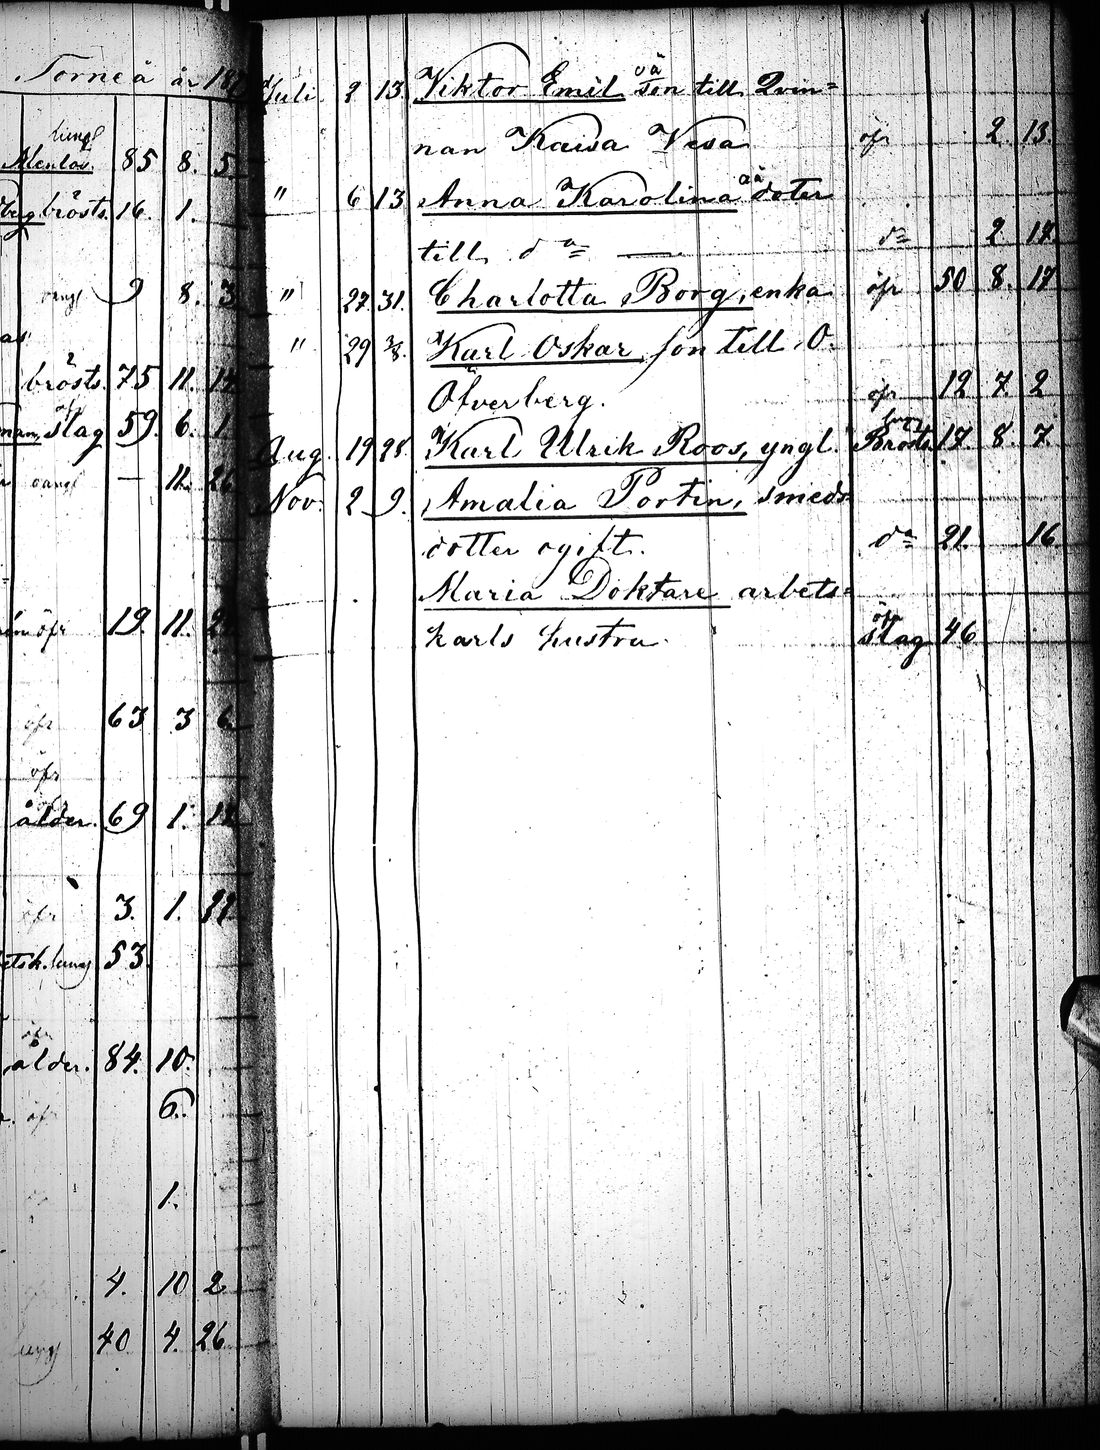 Torneå år 187
lungs
Alenlos. 85 8. 5
berg brösts. 16. 1.
9 8. 3
brösts. 75 11. 14
man, slag 59. 6. 1.
— 11. 26
öfr 19. 11. 22
öfr 63 3 6
öfr
ålder. 69 1. 12
öfr 3. 1. 22
betsk. lung 53.
ålder. 84. 10.
öfr 6.
1.
4. 10 2
lung 40 4. 26
Juli. 2 13. Viktor Emil oä son till Qvin=
nan Kaisa Vesa öfr 2. 13.
" 6 13 Anna Karolina oä doter
till d:o — d:o 2 17.
" 27. 31. Charlotta Borg, enka öfr 50 8. 17
" 29 3/8. Karl Oskar, son till O.
Öfverberg. öfr 12 7. 2
Aug. 19 28. Karl Ulrik Roos, yngl. Brösts 17 8. 7.
Nov. 2 9. Amalia Portin, smeds=
dotter ogift. d:o 21. 16.
Maria Doktare arbets=
karls hustru. öfr slag 46